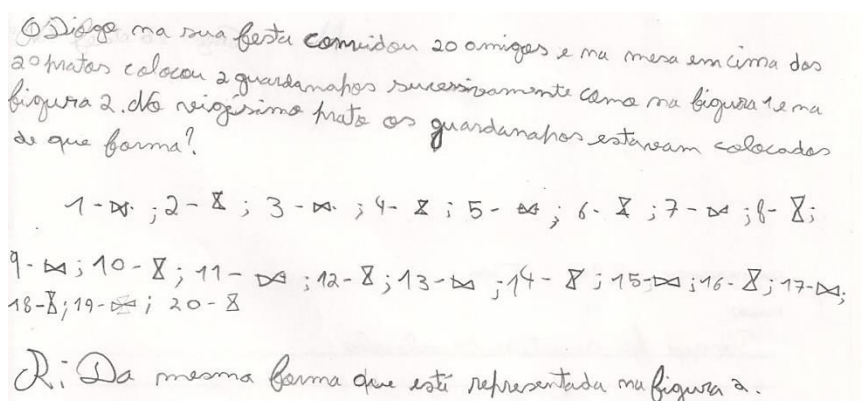 O Diogo na sua festa convidou 20 amigos e na mesa em cima dos
20 pratos colocou 2 guardanapos sucessivamente como na figura 1 e na
figura 2. No vigésimo prato os guardanapos estavam colocados
de que forma?
1 - ⋈ ; 2 - ⧖ ; 3 - ⋈ ; 4 - ⧖ ; 5 - ⋈ ; 6 - ⧖ ; 7 - ⋈ ; 8 - ⧖ ;
9 - ⋈ ; 10 - ⧖ ; 11 - ⋈ ; 12 - ⧖ ; 13 - ⋈ ; 14 - ⧖ ; 15 - ⋈ ; 16 - ⧖ ; 17 - ⋈ ;
18 - ⧖ ; 19 - ⋈ ; 20 - ⧖
R: Da mesma forma que está representada na figura 2.